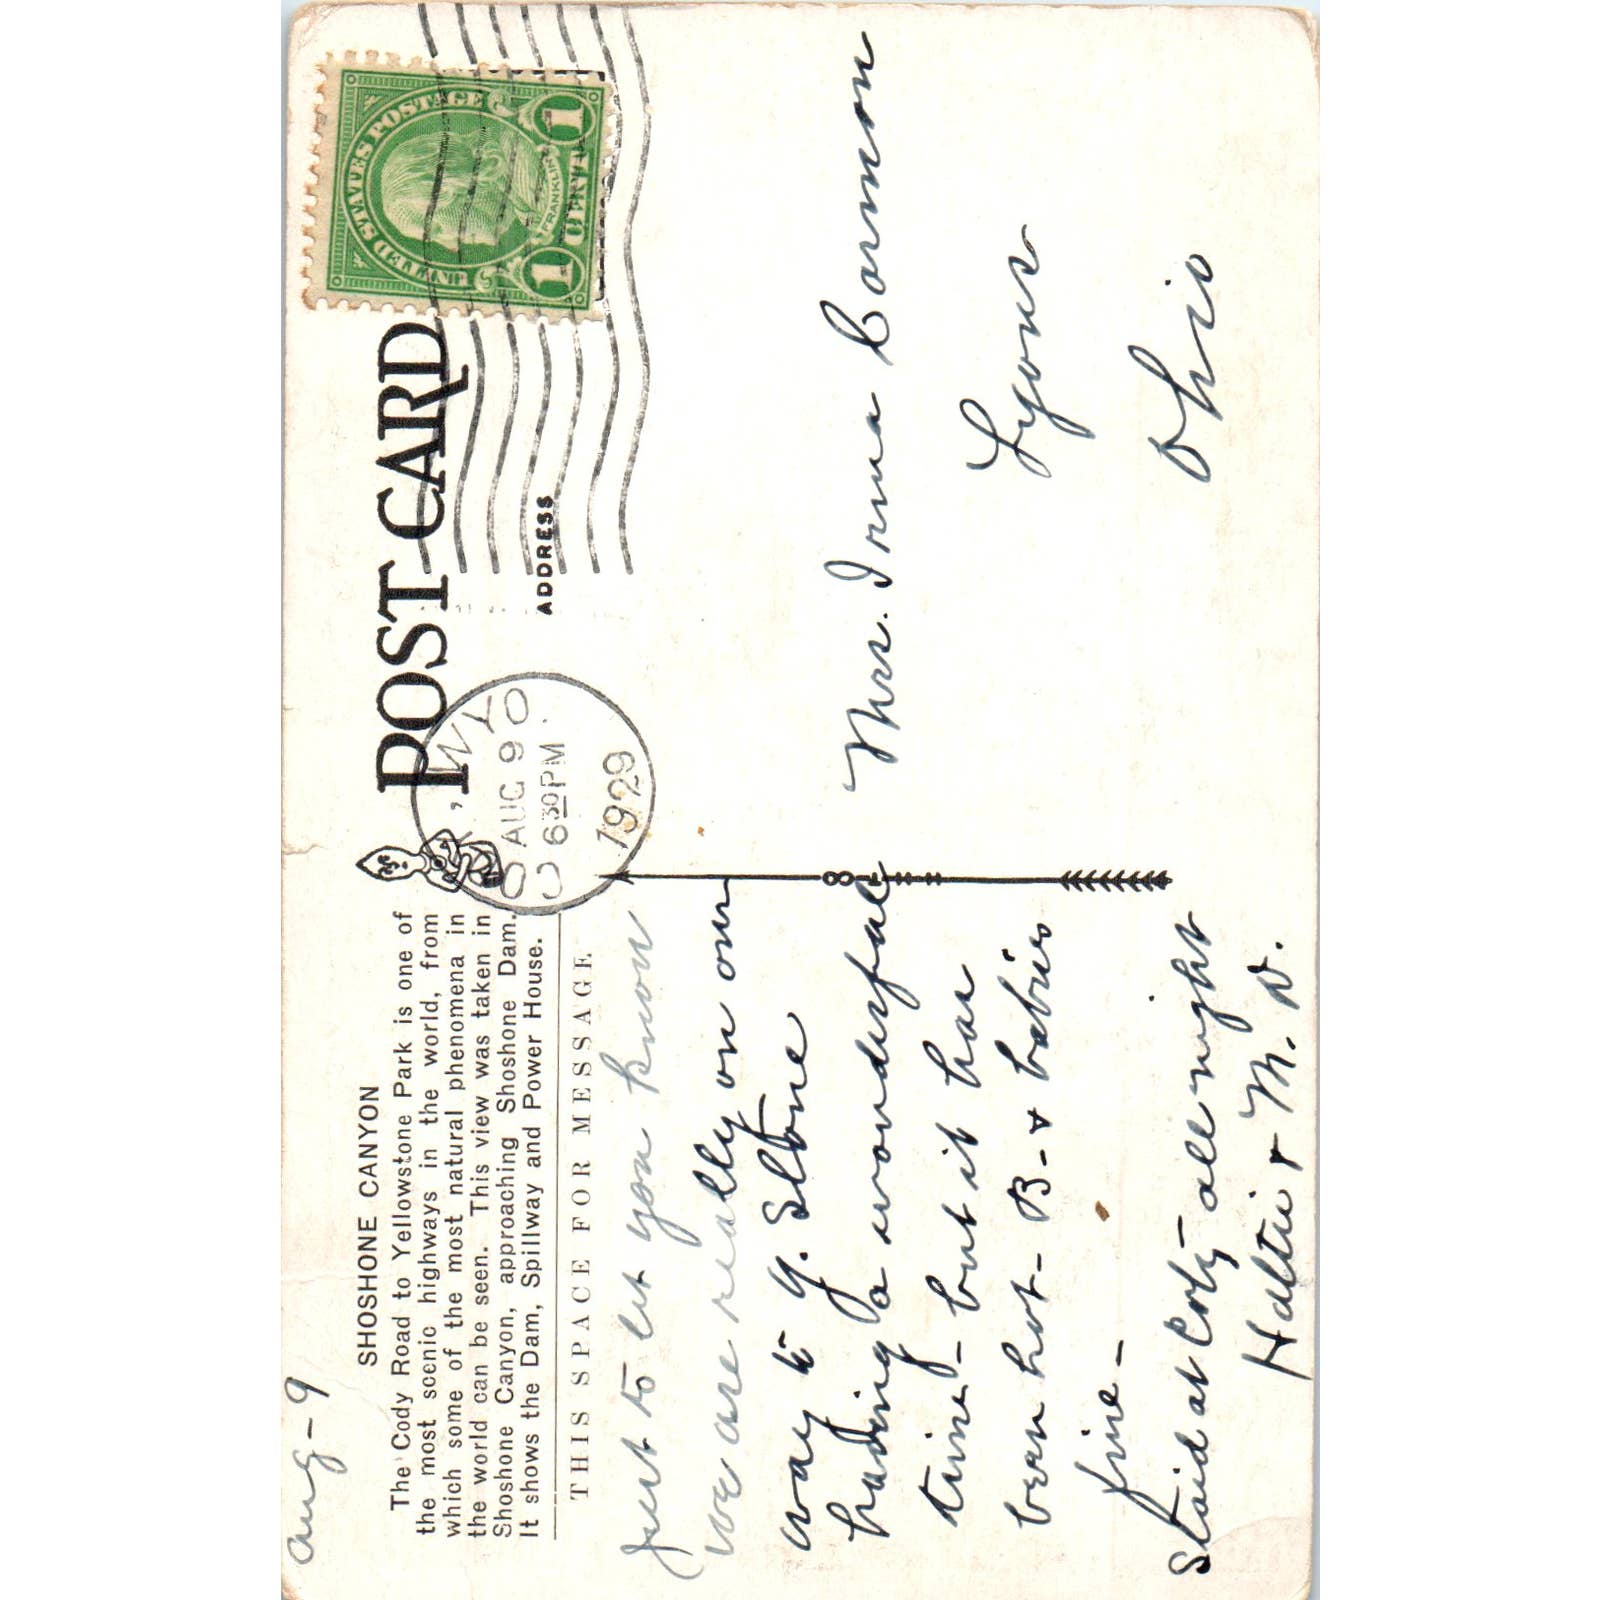 Aug-9
SHOSHONE CANYON
The Cody Road to Yellowstone Park is one of
the most scenic highways in the world, from
which some of the most natural phenomena in
the world can be seen. This view was taken in
Shoshone Canyon, approaching Shoshone Dam.
It shows the Dam, Spillway and Power House.
THIS SPACE FOR MESSAGE
Just to let you know
we are really on our
way to Y. Stone
having a wonderful
time - but it has
been hot - B - + babies
fine -
Staid at Cody - all night
Hattie + M. D.
POST CARD
ADDRESS
CODY, WYO
AUG 9
6 30 PM
1929
UNITED STATES POSTAGE
FRANKLIN
1 CENT 1
Mrs. Irma Cannon
Lyons
Ohio